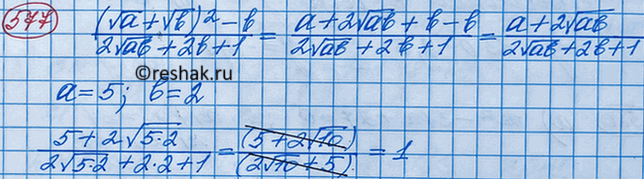 577 ((√a + √b)² - b)/(2√ab + 2b + 1) = (a + 2√ab + b - b)/(2√ab + 2b + 1) = (a + 2√ab)/(2√ab + 2b + 1)
©reshak.ru
a = 5; b = 2
(5 + 2√5·2)/(2√5·2 + 2·2 + 1) = (5 + 2√10)/(2√10 + 5) = 1